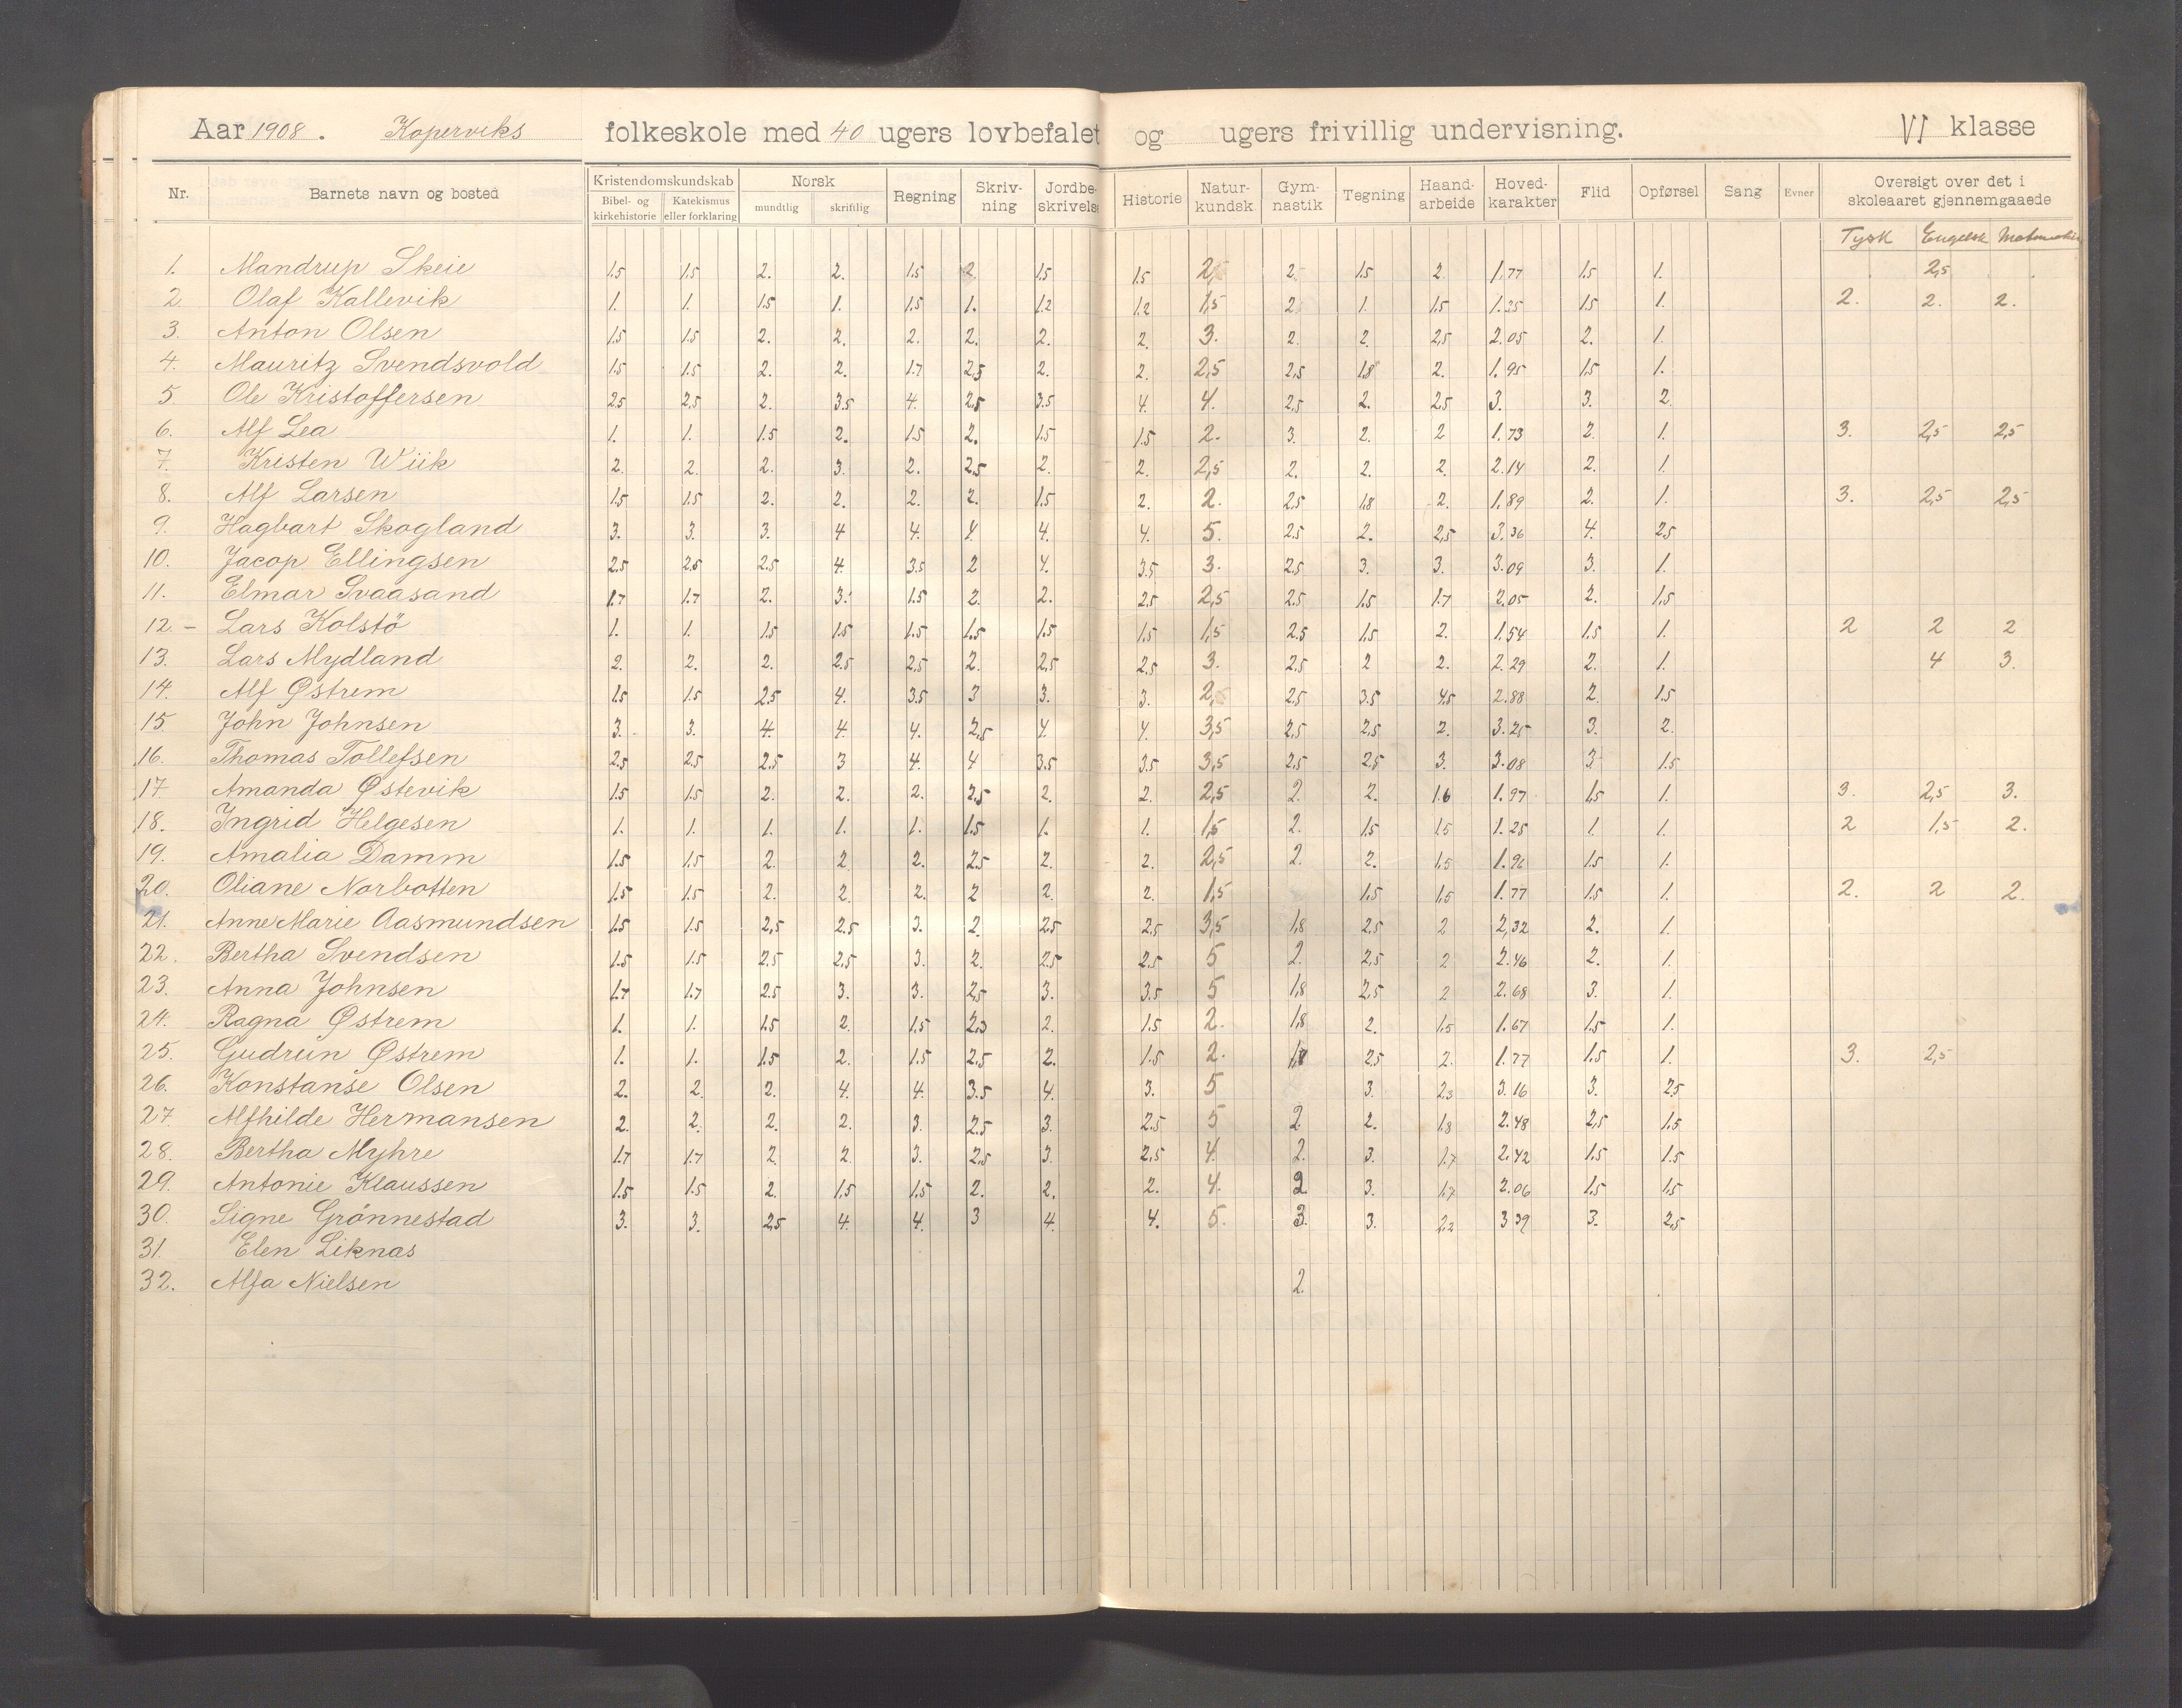 Aar 1908. Koperviks folkeskole med 40 ugers lovbefalet og ugers frivillig undervisning. VI klasse
Nr. Barnets navn og bosted Kristendomskundskab Norsk Regning Skriv-ning Jordbe-skrivelse Historie Natur-kundsk. Gym-nastik Tegning Haand-arbeide Hoved-karakter Flid Opførsel Sang Evner Oversigt over det i skoleaaret gjennemgaaede
Bibel- og kirkehistorie Katekismus eller forklaring mundtlig skriftlig
Tysk Engelsk
1. Mandrup Skeie 1.5 1.5 2. 2. 1.5 2. 1.5 1.5 2,5 2. 1.5 2. 1.77 1.5 1. 2,5
2 Olaf Kallevik 1. 1. 1.5 1. 1.5 1. 1.2 1.2 1,5 2 1. 1.5 1.35 1.5 1. 2. 2. 2.
3. Anton Olsen 1.5 1.5 2. 2. 2. 2. 2. 2. 3. 2. 2. 2,5 2.05 2. 1.
4. Mauritz Svendsvold 1.5 1.5 2. 2. 1.7 2.5 2. 2. 2,5 2,5 1,8 2. 1.95 1.5 1.
5. Ole Kristoffersen 2.5 2,5 2. 3.5 4. 2.5 3.5 4. 4. 2,5 2. 2.5 3. 3. 2.
6. Alf Lea 1. 1. 1.5 2. 1.5 2. 1.5 1.5 2. 3. 2. 2 1.73 2. 1. 3. 2,5 2,5
7. Kristen Wiik 2. 2. 2. 3. 2. 2.5 2. 2. 2,5 2. 2. 2. 2.14 2. 1.
8. Alf Larsen 1.5 1.5 2. 2. 2. 2. 1.5 2. 2. 2.5 1.8 2. 1.89 2. 1. 3. 2,5 2,5
9. Hagbart Skogland 3. 3. 3. 4 4. 4. 4. 4. 5. 2.5 2. 2,5 3.36 4. 2.5
10. Jacop Ellingsen 2.5 2.5 2.5 4. 3.5 2 4. 3.5 3. 2.5 3. 3. 3.09 3. 1.
11. Elmar Svaasand 1.7 1.7 2. 3. 1.5 2. 2. 2.5 2,5 2.5 1.5 1.7 2.05 2. 1,5
12. - Lars Kolstö 1. 1. 1.5 1.5 1.5 1.5 1.5 1.5 1,5 2.5 1,5 2. 1.54 1.5 1. 2 2 2
13. Lars Mydland 2. 2. 2. 2.5 2,5 2. 2,5 2.5 3. 2,5 2 2. 2.29 2. 1. 4 3.
14. Alf Østrem 1.5 1.5 2.5 4. 3.5 3 3. 3. 2,5 2,5 3.5 4,5 2.88 2. 1.5
15. John Johnsen 3. 3. 4. 4 4. 2,5 4. 4. 3,5 2,5 2,5 2. 3.25 3. 2.
16. Thomas Tollefsen 2.5 2.5 2.5 3 4. 4 3.5 3.5 3,5 2,5 2.5 3. 3.08 3. 1.5
17 Amanda Østevik 1.5 1.5 2. 2. 2. 2,5 2. 2. 2,5 2. 2. 1.6 1.97 1,5 1. 3. 2,5 3.
18. Ingrid Helgesen 1. 1. 1. 1. 1. 1.5 1. 1. 1,5 2. 1.5 1.5 1.25 1. 1. 2 1,5 2.
19. Amalia Damm 1.5 1.5 2. 2 2. 2.5 2. 2. 2,5 2. 2. 1.5 1.96 1.5 1.
20. Oliane Norbotten 1.5 1.5 2. 2. 2. 2 2. 2. 1,5 1.5 1.5 1.77 1.5 1. 2. 2 2.
21. Anne Marie Aasmundsen 1.5 1.5 2,5 2.5 3. 2. 2.5 2.5 3,5 1,8 2.5 2 2,32 2. 1.
22. Bertha Svendsen 1.5 1.5 2.5 2,5 3. 2. 2.5 2.5 5 2. 2,5 2 2.46 2. 1.
23. Anna Johnsen 1.7 1.7 2.5 3. 3. 2,5 3. 3.5 5 1,8 2,5 2 2.68 3. 1.
24. Ragna Østrem 1. 1. 1.5 2. 1,5 2,3 2. 1.5 2. 1,8 2. 1.5 1.67 1.5 1.
25. Gudrun Østrem 1. 1. 1.5 2. 1.5 2.5 2. 1.5 2. 1,8 2.5 2. 1.77 1.5 1. 3. 2,5
26. Konstanse Olsen 2. 2. 2. 4. 4. 3.5 4. 3. 5 3. 2.3 3.16 3. 2.5
27. Alfhilde Hermansen 2. 2. 2. 2. 3. 2.5 3. 2.5 5 2 2. 1.8 2.48 2,5 1.5
28. Bertha Myhre 1.7 1.7 2. 2. 3. 2,5 3. 2,5 4. 2. 3. 1.7 2.42 1.5 1.5
29. Antonie Klaussen 1.5 1.5 2. 1,5 1.5 2. 2. 2. 4. 2. 3. 1.7 2.06 1.5 1.5
30. Signe Grönnestad 3. 3. 2.5 4. 4. 3 4. 4. 5. 3. 3. 2,2 3 39 3. 2.5
31. Elen Liknas
32. Alfa Nielsen 2.